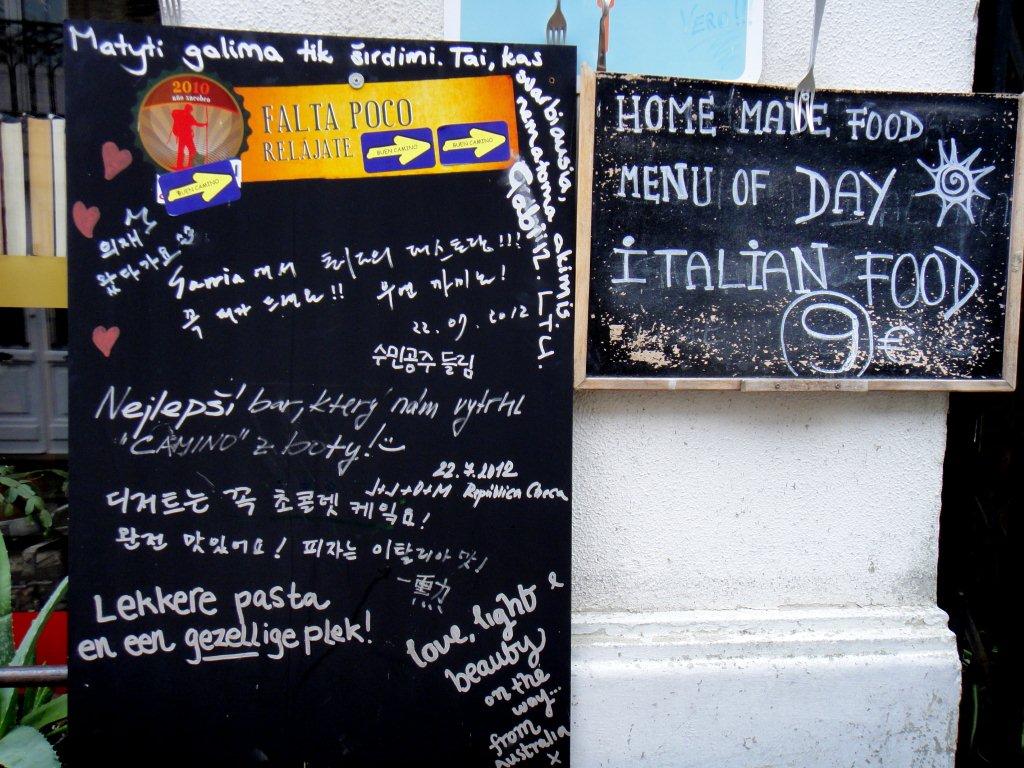 Matyti galima tik širdimi. Tai, kas
svarbiausia,
nematoma akimis
Gabija. LTU.
2010
año xacobeo
FALTA POCO
RELÁJATE
BUEN CAMINO
BUEN CAMINO
BUEN CAMINO
의재
왔다가요
Sarria에서 최고의 레스토랑!!!
꼭 먹자 드세요!! 우연 까미노!
22. 07. 2012
수민공주 들림
Nejlepší bar, který nám vytrhl
"CAMINO" z boty!
22.7.2012
J+J+D+M República Checa
디저트는 꼭 초콜렛 케잌요!
완전 맛있어요! 피자는 이탈리아 맛!
Lekkere pasta
en een gezellige plek!
love, light &
beauty
on the
way...
from
Australia
x
VERO!!
HOME MADE FOOD
MENU OF DAY
ITALIAN FOOD
9 €